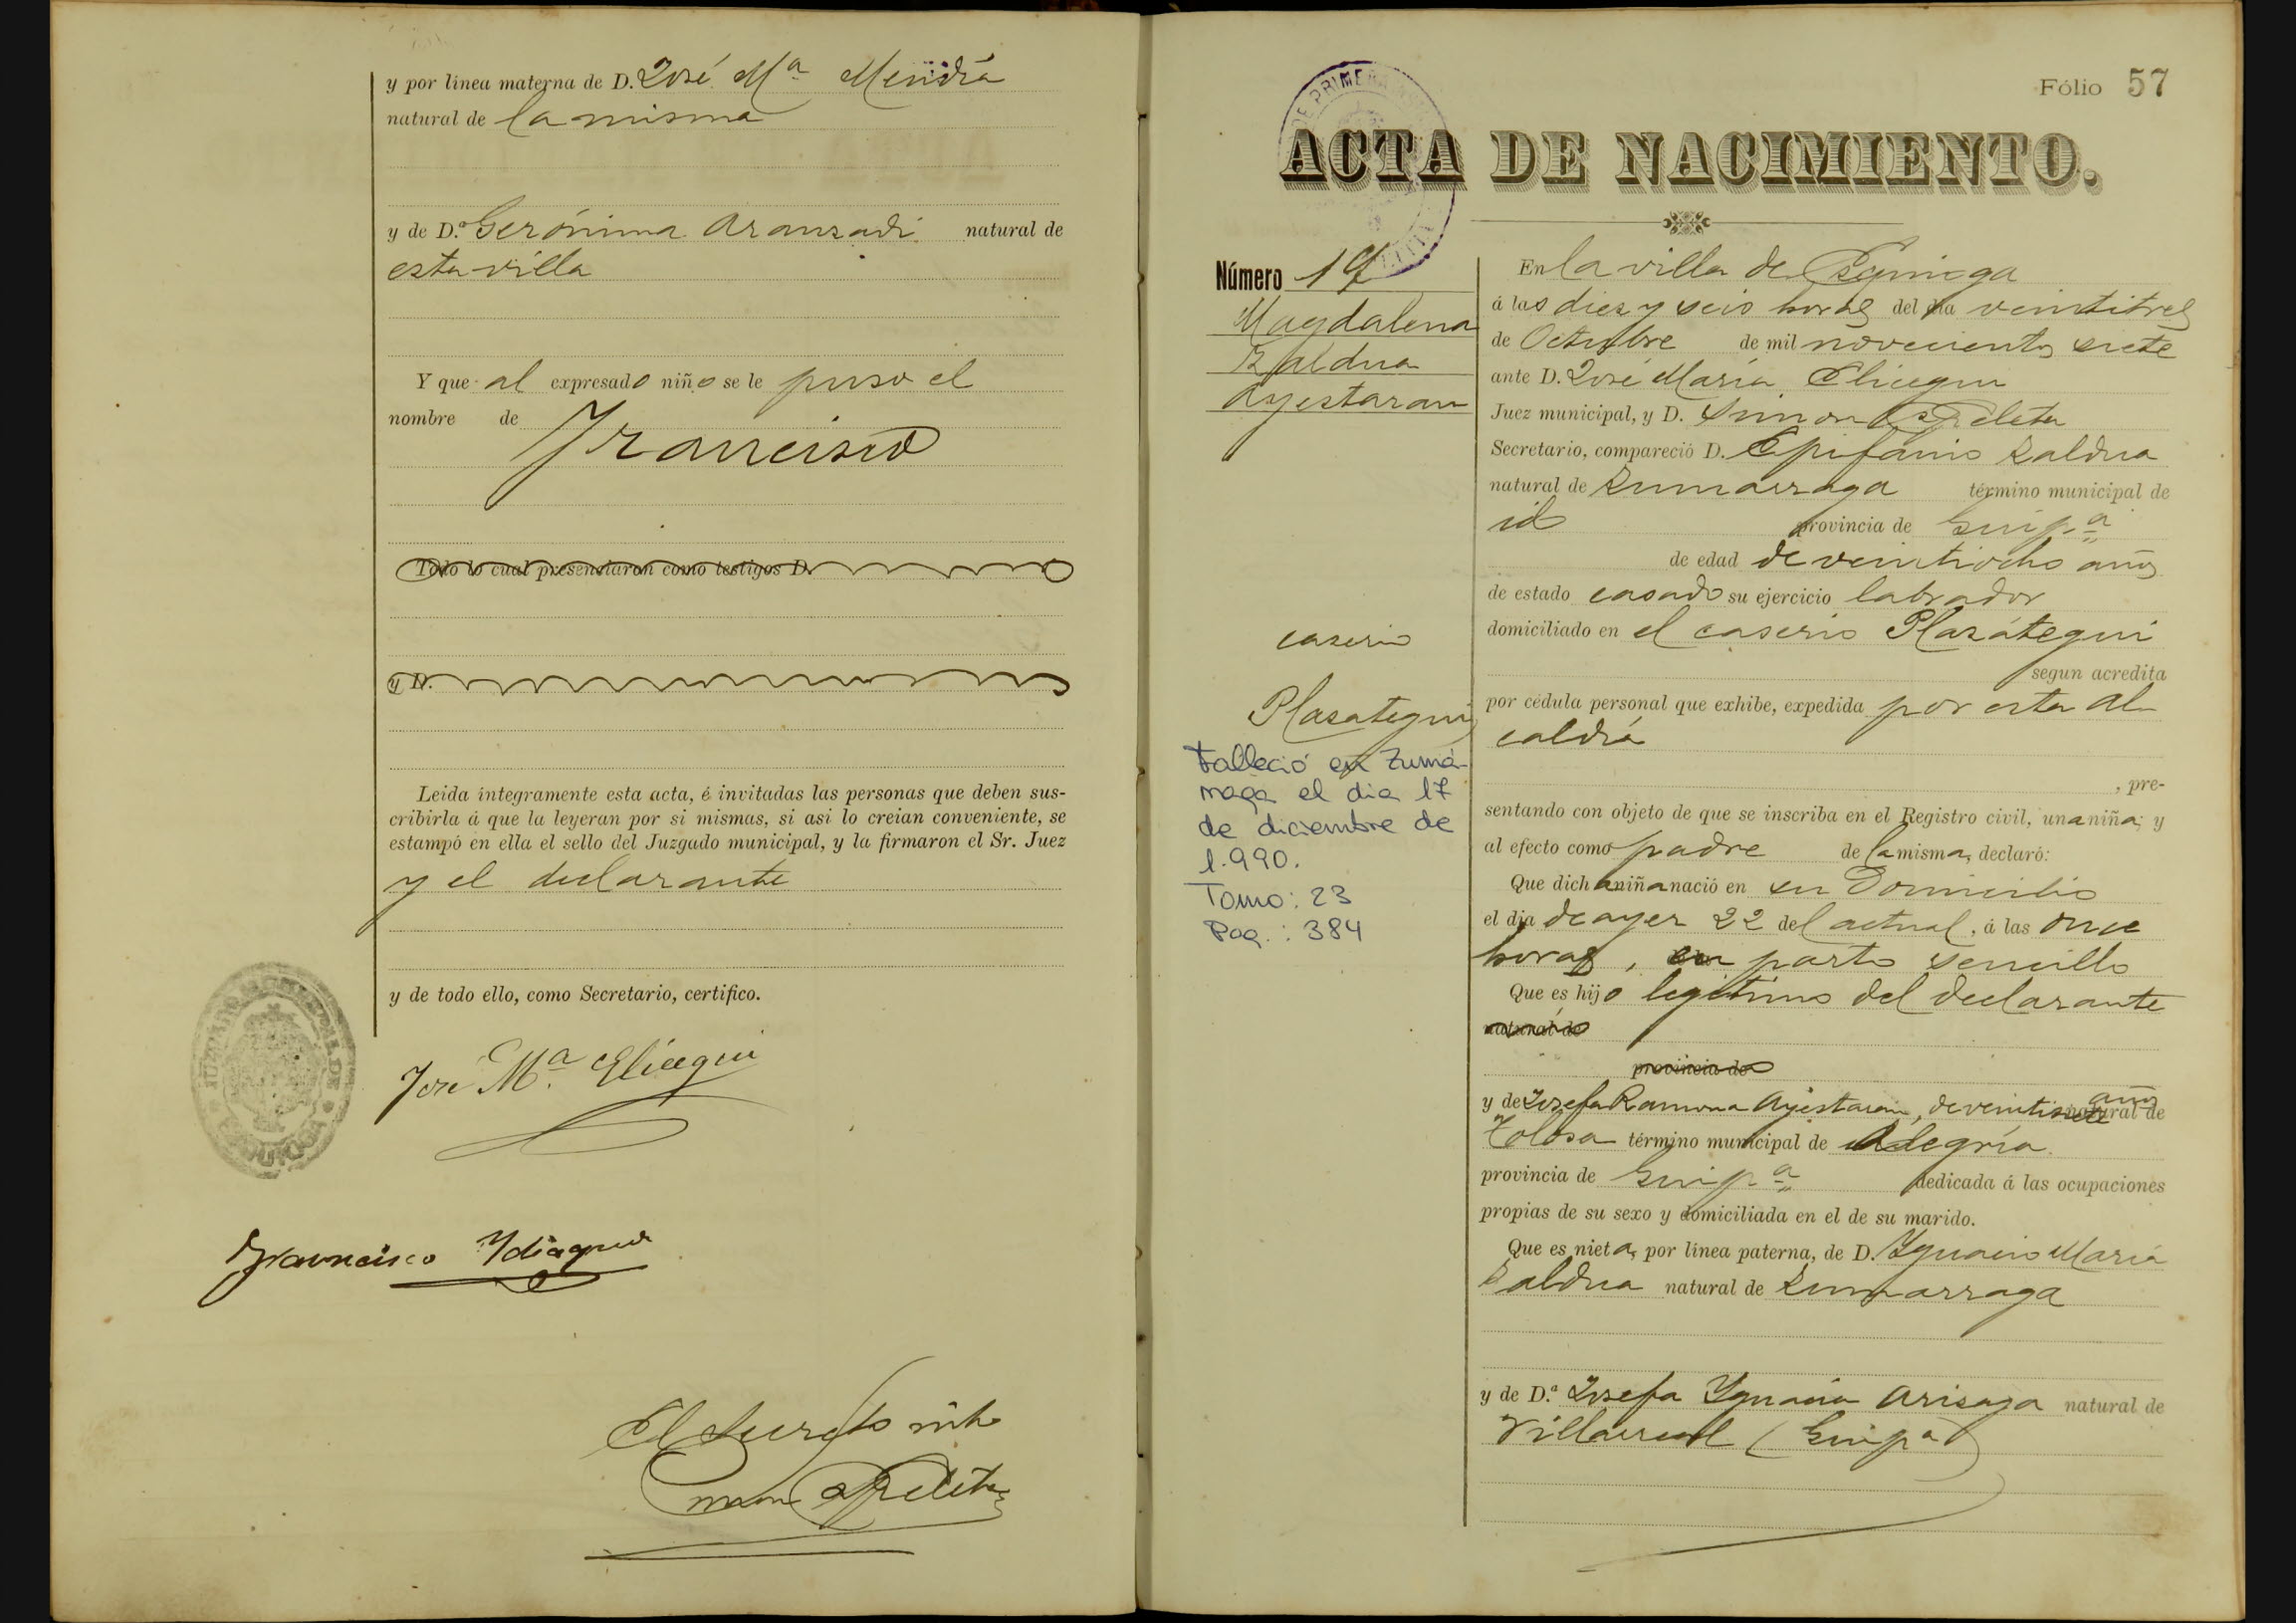 y por línea materna de D. José Mª Mendía
natural de la misma
y de D.ª Gerónima Aranzadi natural de
esta villa
Y que al expresado niño se le puso el
nombre de
Francisco
Todo lo cual presenciaron como testigos D.
y D.
Leida íntegramente esta acta, é invitadas las personas que deben sus-
cribirla á que la leyeran por si mismas, si asi lo creian conveniente, se
estampó en ella el sello del Juzgado municipal, y la firmaron el Sr. Juez
y el declarante
y de todo ello, como Secretario, certifico.
José Mª Elícegui
Francisco
El
Fólio 57
ACTA DE NACIMIENTO.
Número 17
Magdalena
Zaldua
Ayestaran
caserio
Plazategui
Falleció en Zumá-
rraga el dia 17
de diciembre de
1.990.
Tomo: 23
Pag.: 384
En la villa de Ezquioga
á las diez y seis horas del dia veintitres
de Octubre de mil novecientos siete
ante D. José María Elícegui
Juez municipal, y D. Simon
Secretario, compareció D. Epifanio Zaldua
natural de Zumarraga término municipal de
id provincia de Guip.ª
de edad de veintiocho años
de estado casado su ejercicio labrador
domiciliado en el caserio Plazátegui
segun acredita
por cédula personal que exhibe, expedida por esta Al-
caldía
, pre-
sentando con objeto de que se inscriba en el Registro civil, una niña; y
al efecto como padre de la misma, declaró:
Que dicha niña nació en su domicilio
el dia de ayer 22 del actual, á las once
horas, en parto sencillo
Que es hijo legítimo del declarante
natural de
provincia de
y de Josefa Ramona Ayestaran, de veintisiete años natural de
Tolosa término municipal de Alegría
provincia de Guip.ª dedicada á las ocupaciones
propias de su sexo y domiciliada en el de su marido.
Que es nieta, por línea paterna, de D. Ygnacio María
Zaldua natural de Zumarraga
y de D.ª Josefa Ygnacia Arizaga natural de
Villarreal (Guip.ª)